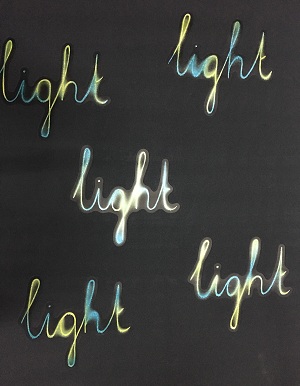 light
light
light
light
light